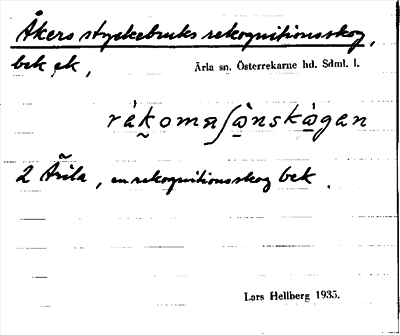 Åkers styckebruks rekognitionsskog,
bek ek, Ärla sn. Österrekarne hd. Sdml. l.
2 Ärila, en rekognitionsskog bek.
Lars Hellberg 1935.